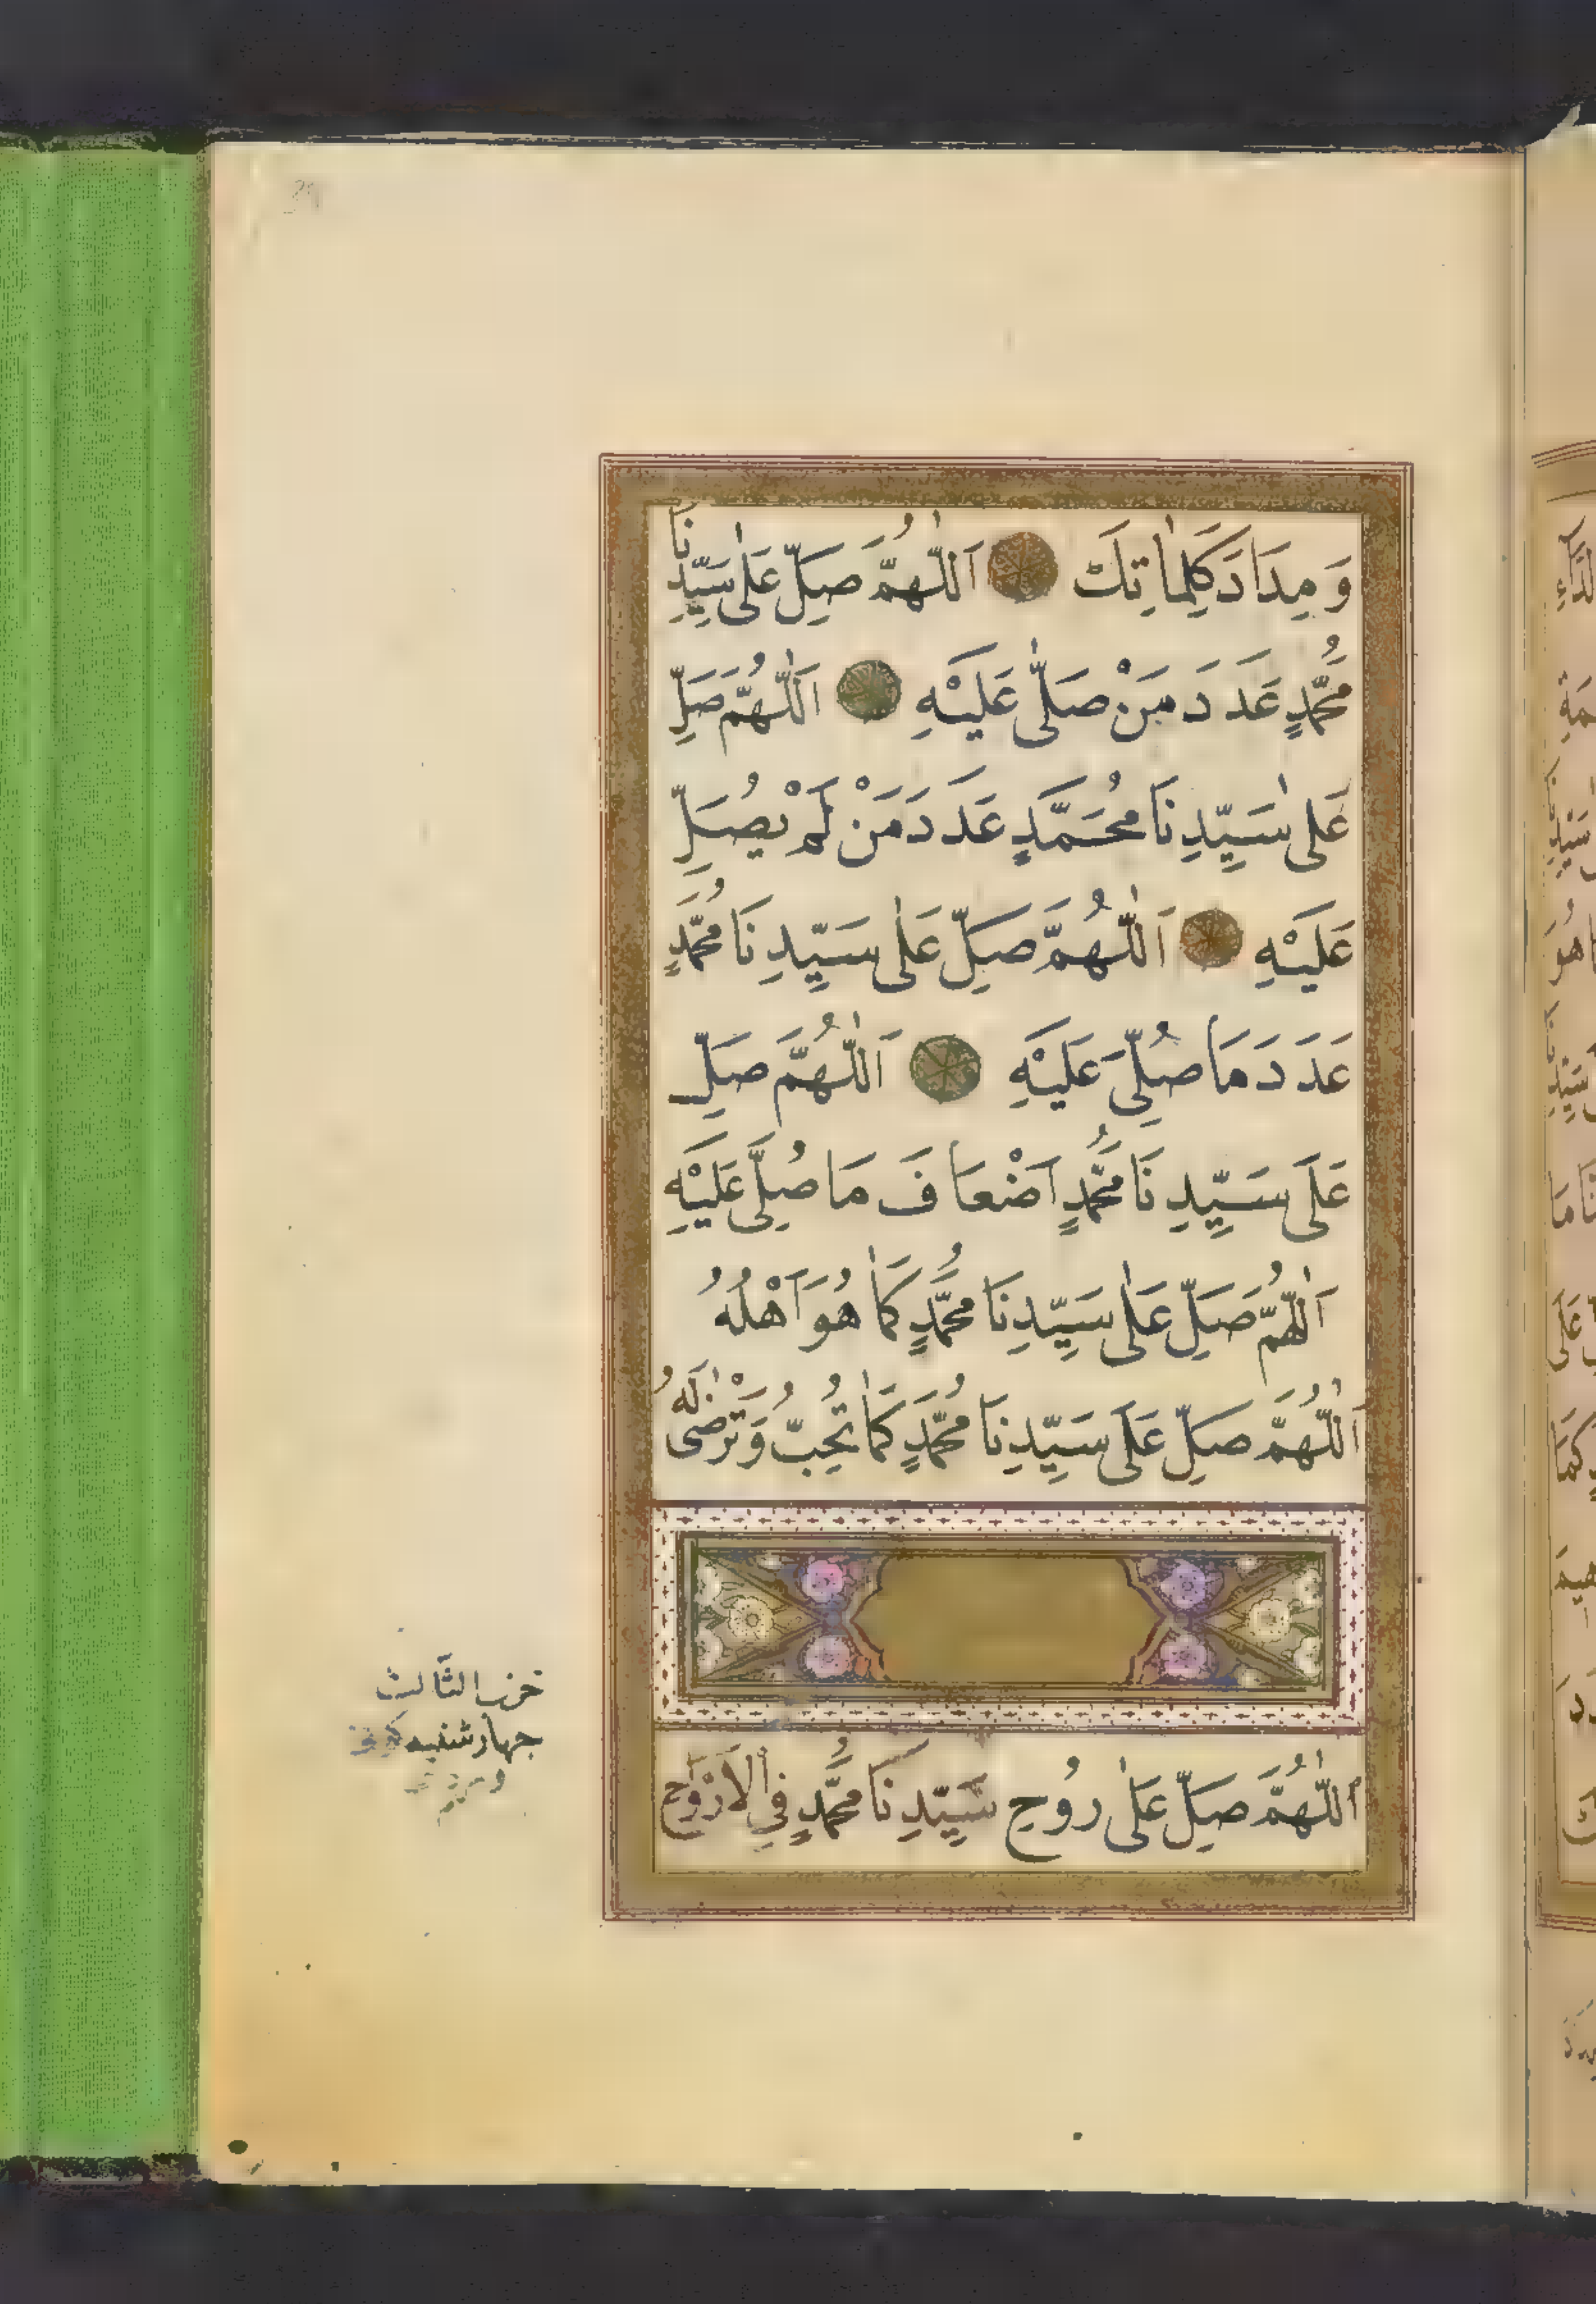 وَمِدَادَ كَلِمَاتِكَ اَللّٰهُمَّ صَلِّ عَلٰى سَيِّدِنَا
مُحَمَّدٍ عَدَدَ مَنْ صَلّٰى عَلَيْهِ اَللّٰهُمَّ صَلِّ
عَلٰى سَيِّدِنَا مُحَمَّدٍ عَدَدَ مَنْ لَمْ يُصَلِّ
عَلَيْهِ اَللّٰهُمَّ صَلِّ عَلٰى سَيِّدِنَا مُحَمَّدٍ
عَدَدَ مَا صُلِّيَ عَلَيْهِ اَللّٰهُمَّ صَلِّ
عَلَى سَيِّدِنَا مُحَمَّدٍ اَضْعَافَ مَا صُلِّيَ عَلَيْهِ
اَللّٰهُمَّ صَلِّ عَلٰى سَيِّدِنَا مُحَمَّدٍ كَمَا هُوَ اَهْلُهُ
اَللّٰهُمَّ صَلِّ عَلَى سَيِّدِنَا مُحَمَّدٍ كَمَا تُحِبُّ وَتَرْضٰى لَهُ
حزب الثَّالث
جهارشنبه
اَللّٰهُمَّ صَلِّ عَلٰى رُوحِ سَيِّدِنَا مُحَمَّدٍ فِي الْاَرْوَاحِ